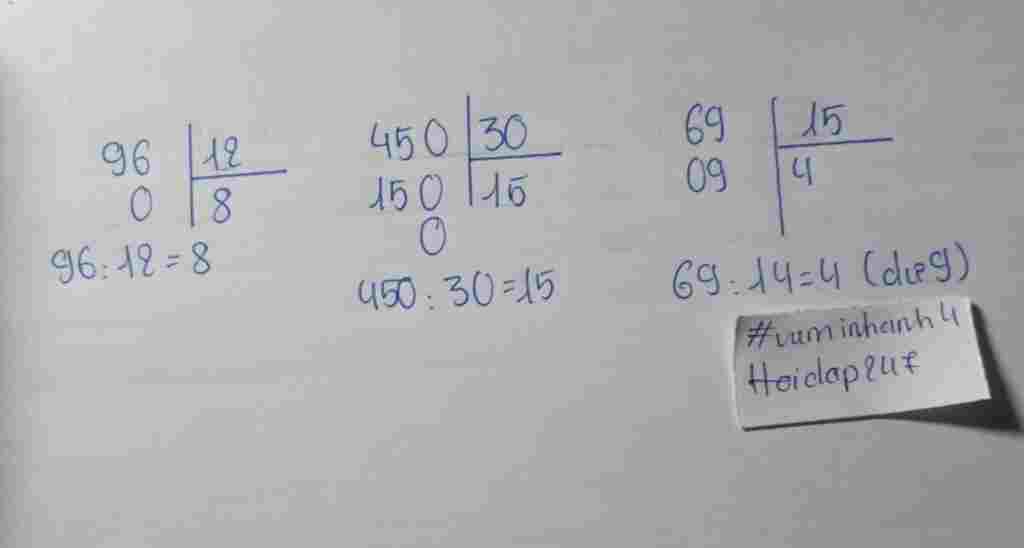 96 | 12
0 | 8
96 : 12 = 8
450 | 30
150 | 15
0
450 : 30 = 15
69 | 15
09 | 4
69 : 14 = 4 (dư 9)
#vuminhanh4
Hoidap247